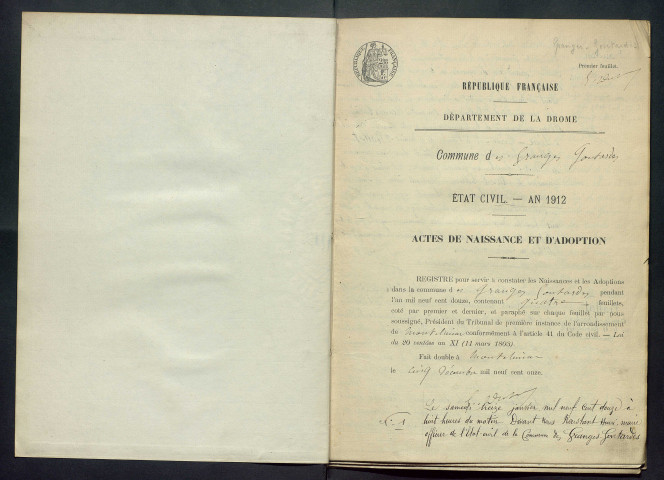 Granges-Gontardes
Premier feuillet.
RÉPUBLIQUE FRANÇAISE
RÉPUBLIQUE FRANÇAISE
DÉPARTEMENT DE LA DROME
Commune des Granges Gontardes
ÉTAT CIVIL. — AN 1912
ACTES DE NAISSANCE ET D'ADOPTION
REGISTRE pour servir à constater les Naissances et les Adoptions
dans la commune des Granges Gontardes pendant
l'an mil neuf cent douze, contenant quatre feuillets,
coté par premier et dernier, et paraphé sur chaque feuillet par nous
soussigné, Président du Tribunal de première instance de l'arrondissement
de Montélimar conformément à l'article 41 du Code civil. — Loi
du 20 ventôse an XI (11 mars 1803).
Fait double à Montélimar
le cinq Décembre mil neuf cent onze.
Le samedi treize janvier mil neuf cent douze à
N° 1 huit heures du matin. Devant nous maire
officier de l'état civil de la Commune des Granges Gontardes